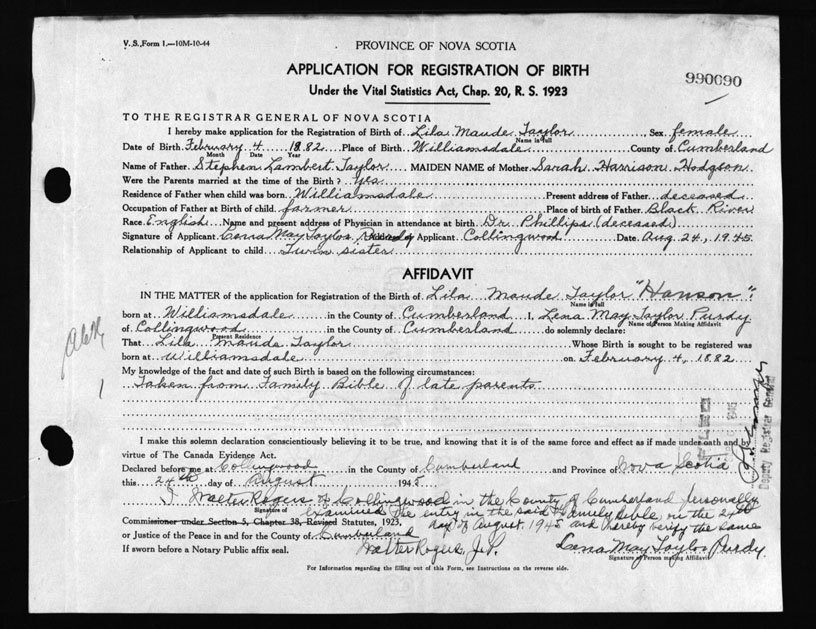 V. S. Form 1.—10M-10-44
PROVINCE OF NOVA SCOTIA
APPLICATION FOR REGISTRATION OF BIRTH
990690
Under the Vital Statistics Act, Chap. 20, R. S. 1923
TO THE REGISTRAR GENERAL OF NOVA SCOTIA
I hereby make application for the Registration of Birth of Lila Maude Taylor Sex female
Name in full
Date of Birth February 4 1882 Place of Birth Williamsdale County of Cumberland
Month Date Year
Name of Father Stephen Lambert Taylor MAIDEN NAME of Mother Sarah Harrison Hodgson
Were the Parents married at the time of the Birth? Yes
Residence of Father when child was born Williamsdale Present address of Father deceased
Occupation of Father at Birth of child farmer Place of birth of Father Black River
Race English Name and present address of Physician in attendance at birth Dr. Phillips (deceased)
Signature of Applicant Lena May Taylor Purdy Applicant Collingwood Date Aug 24, 1945
Relationship of Applicant to child Twin sister
AFFIDAVIT
IN THE MATTER of the application for Registration of the Birth of Lila Maude Taylor "Hanson"
Name in full
born at Williamsdale in the County of Cumberland I, Lena May Taylor Purdy
Name of Person Making Affidavit
of Collingwood in the County of Cumberland do solemnly declare:
Present Residence
That Lila Maude Taylor Whose Birth is sought to be registered was
born at Williamsdale on February 4, 1882
My knowledge of the fact and date of such Birth is based on the following circumstances:
Taken from Family Bible of late parents
Deputy Registrar General
I make this solemn declaration conscientiously believing it to be true, and knowing that it is of the same force and effect as if made under oath and by
virtue of The Canada Evidence Act.
Declared before me at Collingwood in the County of Cumberland and Province of Nova Scotia
this 24th day of August 1945
I Walter Rogers of Collingwood in the County of Cumberland personally
Signature of
examined the entry in the said Family Bible on the 24th
Commissioner under Section 5, Chapter 38, Revised Statutes, 1923,
day of August 1945 and hereby verify the same
or Justice of the Peace in and for the County of Cumberland
Walter Rogers J.P. Lena May Taylor Purdy
If sworn before a Notary Public affix seal.
Signature of Person making Affidavit
For Information regarding the filling out of this Form, see Instructions on the reverse side.